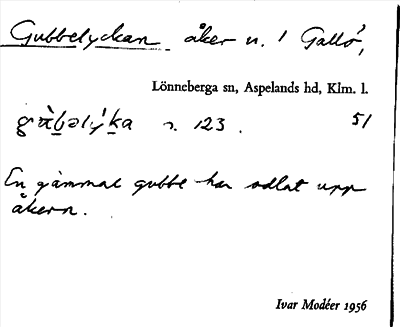 Gubbelyckan åker n. 1 Gallö,
Lönneberga sn, Aspelands hd, Klm. l.
s. 123. 51
En gammal gubbe har odlat upp
åkern.
Ivar Modéer 1956